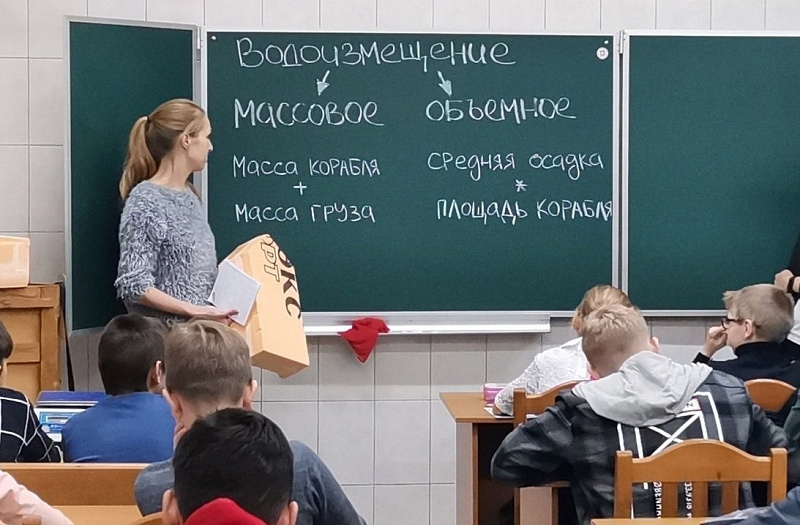 Водоизмещение
массовое объемное
Масса корабля средняя осадка
+ *
Масса груза площадь корабля